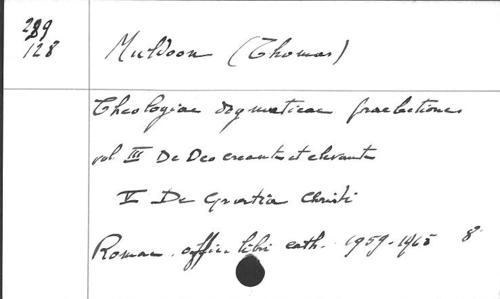 289
128
Muldoon (Thomas)
Theologiae dogmaticae praelectiones
vol III De Deo creante et elevante
V De Gratia Christi
Romae. offic. libri cath. 1959-1965 8°